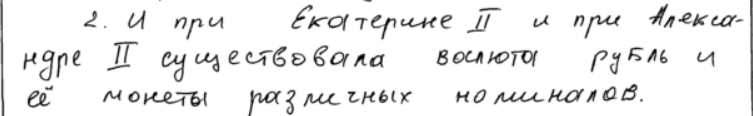 2. И при Екатерине II и при Алекса-
ндре II существовала волюта рубль и
её монеты различных номиналов.